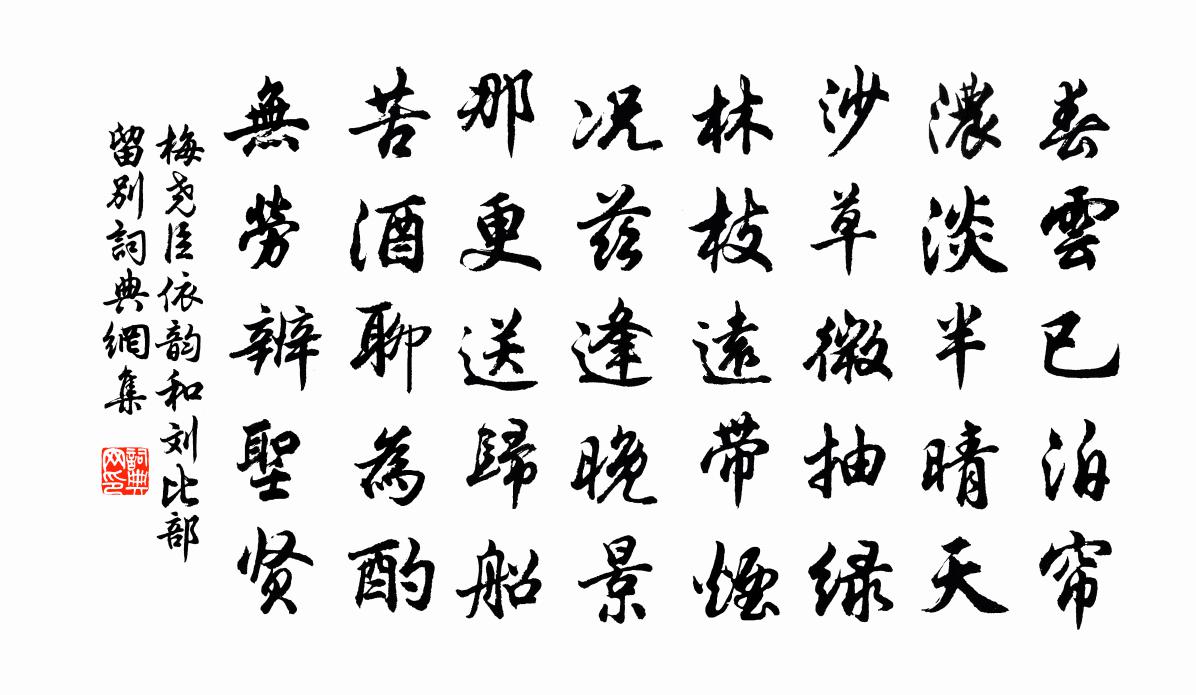 春雲已泊帘
濃淡半晴天
沙草微抽緑
林枝遠带煙
况兹逢晚景
那更送歸船
苦酒聊為酌
無勞辨聖贤
梅尧臣依韵和刘比部
留别詞典網集
詞典网印